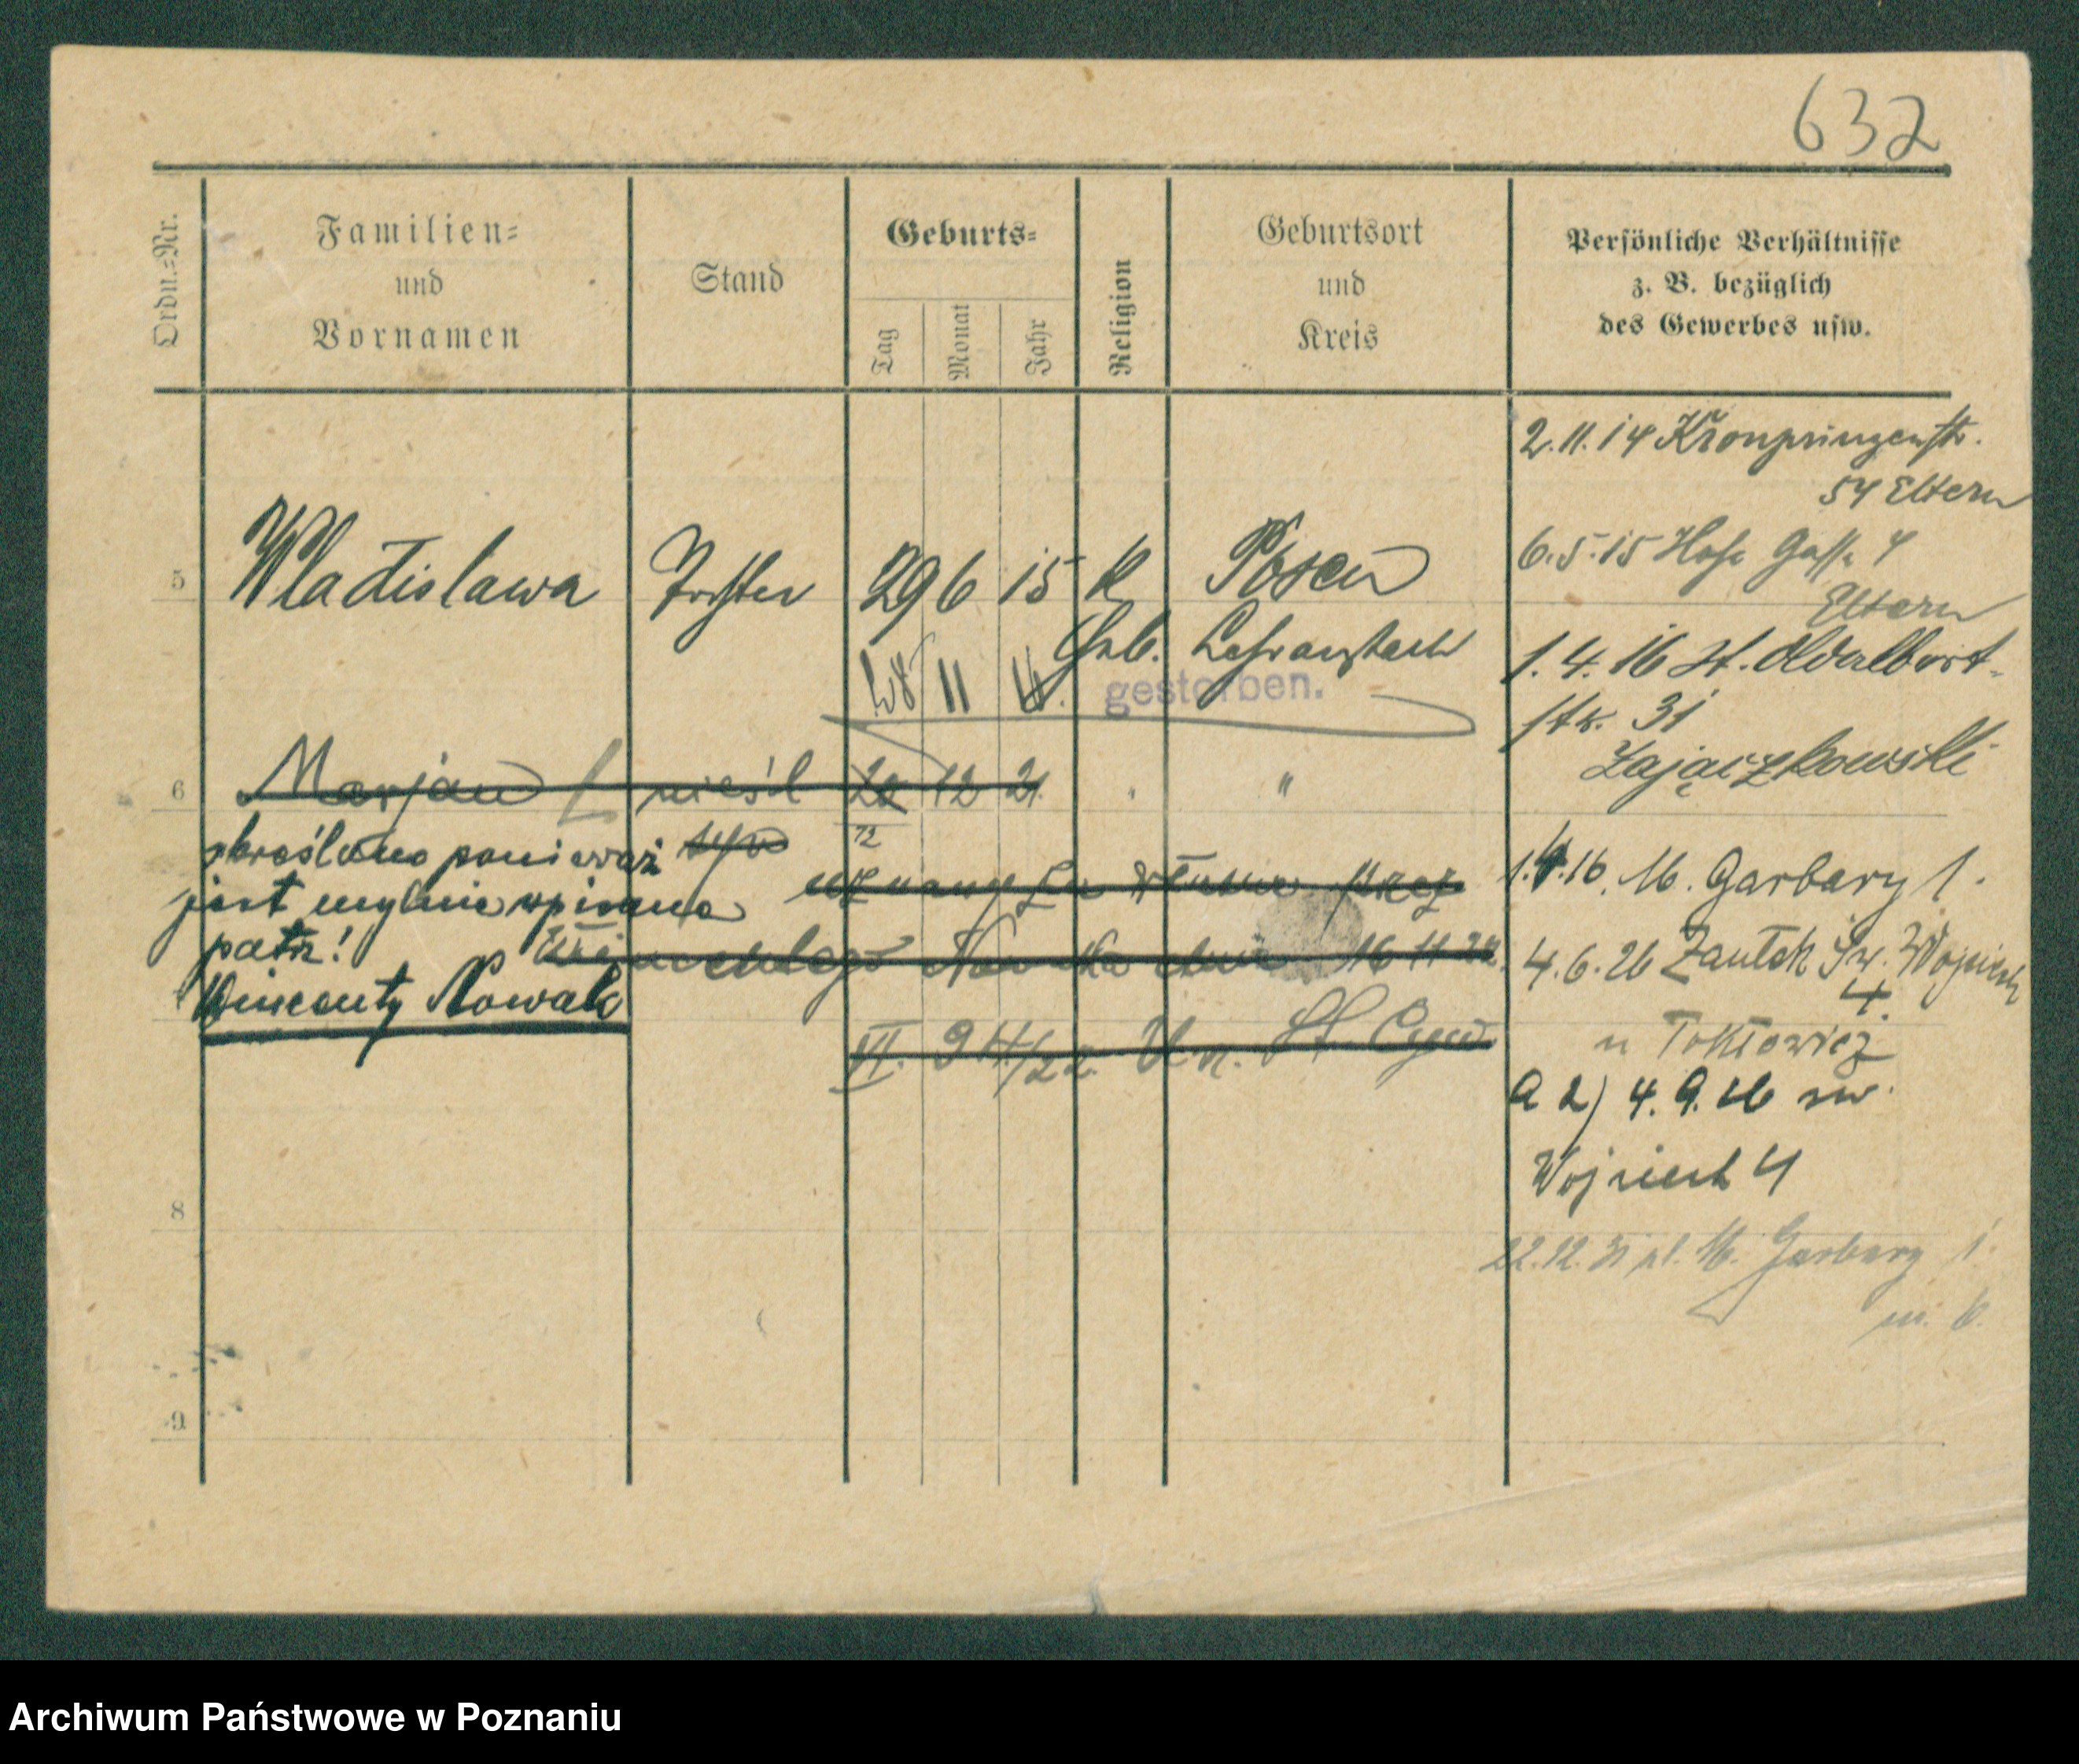 632
Ordn.=Nr.
Familien=
und
Vornamen
Stand
Geburts=
Tag
Monat
Jahr
Religion
Geburtsort
und
Kreis
Persönliche Verhältnisse
z. B. bezüglich
des Gewerbes usw.
2.11.14 Kronprinzenstr.
54 Eltern
5 Wladislawa Tochter 29 6 15 K Posen
6.5.15 Hohe Gasse 4
Eltern
Geb.
gestorben.
11
1.4.16 St. Adalbert-
str. 31
Zajączkowski
6 Marjan nieśl 20 12 21 "
12
skreślono ponieważ syn
jest mylnie wpisana
patrz!
Wincenty Nowak
uznany za przez
Nowaka dnia 16 11 22
VI. 9 St. Cyw.
16. Garbary 1.
4.6.26 Zaułek Św. Wojciech
4.
u
a 2) 4.9.26 św.
Wojciech 4
8
22.12.31 W. Garbary 1.
m. 6.
9
Archiwum Państwowe w Poznaniu